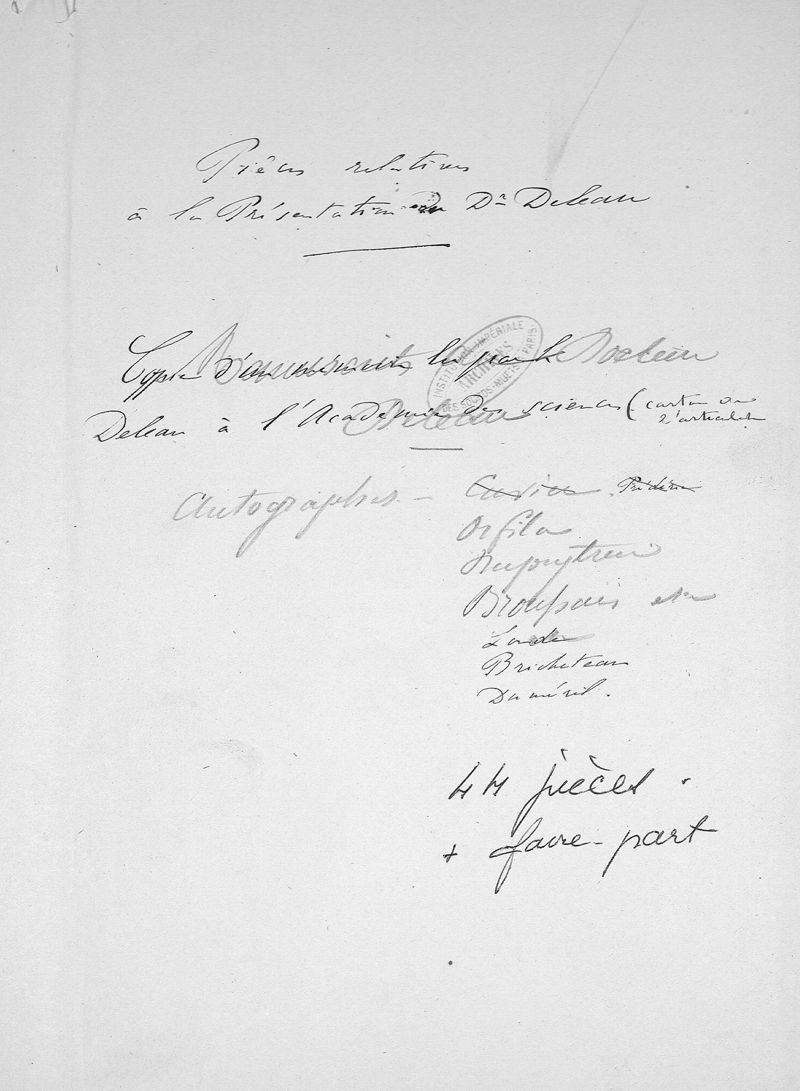 Pièces relatives
à la Présentation du Dr Deleau
Copie d'un mémoire lu par le Docteur
Deleau à l'Académie des sciences (carton de
l'articulation
INSTITUTION IMPÉRIALE
DES SOURDS-MUETS DE PARIS
ARCHIVES
Deleau
Autographes - Cuvier. Frédéric
Orfila
Dupuytren
Broussais
Londe
Bricheteau
Duméril.
44 pièces.
+ faire-part